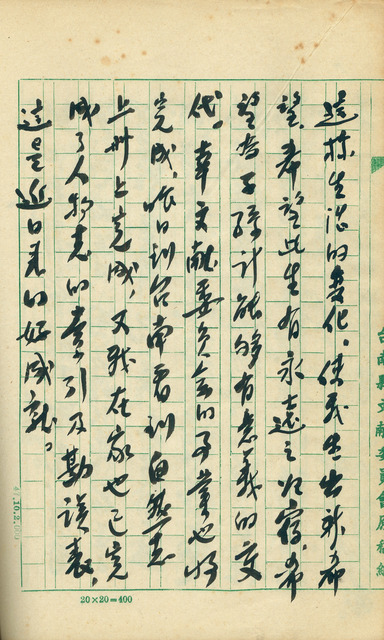 這樣生活的變化。使我生出新希
望、希望此生有永遠之歸宿、希
望為子孫計能夠有意義的交
代。幸文獻委員會的事業也將
完成，昨日到台南看到自然志
上冊上完成，又我在家也已完
成了人物志的索引及勘誤表，
這是近日來的好成就。
台南縣文獻委員會稿紙
20×20=400